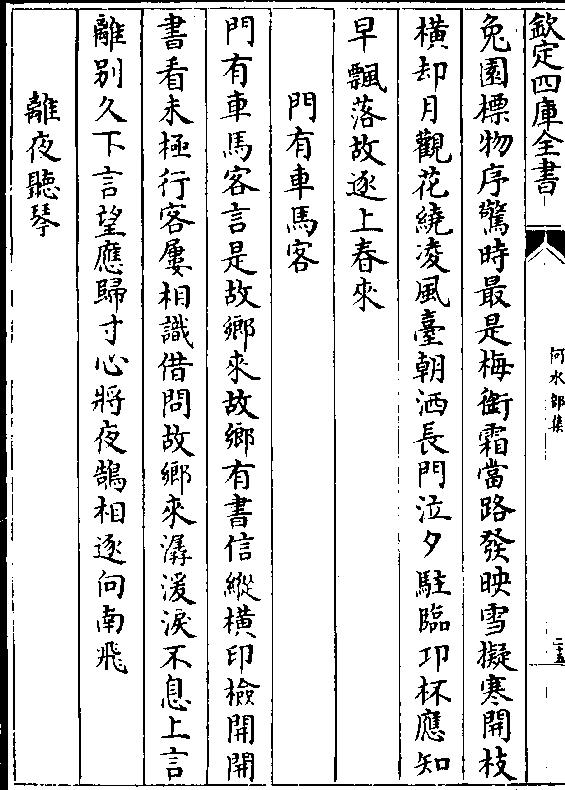 欽定四庫全書
何水部集
二十五
兔園標物序驚時最是梅銜霜當路發映雪擬寒開枝
橫却月觀花繞凌風臺朝洒長門泣夕駐臨卭杯應知
早飄落故逐上春來
門有車馬客
門有車馬客言是故鄉來故鄉有書信縱橫印檢開開
書看未極行客屢相識借問故鄉來潺湲淚不息上言
離别久下言望應歸寸心將夜鵲相逐向南飛
離夜聽琴